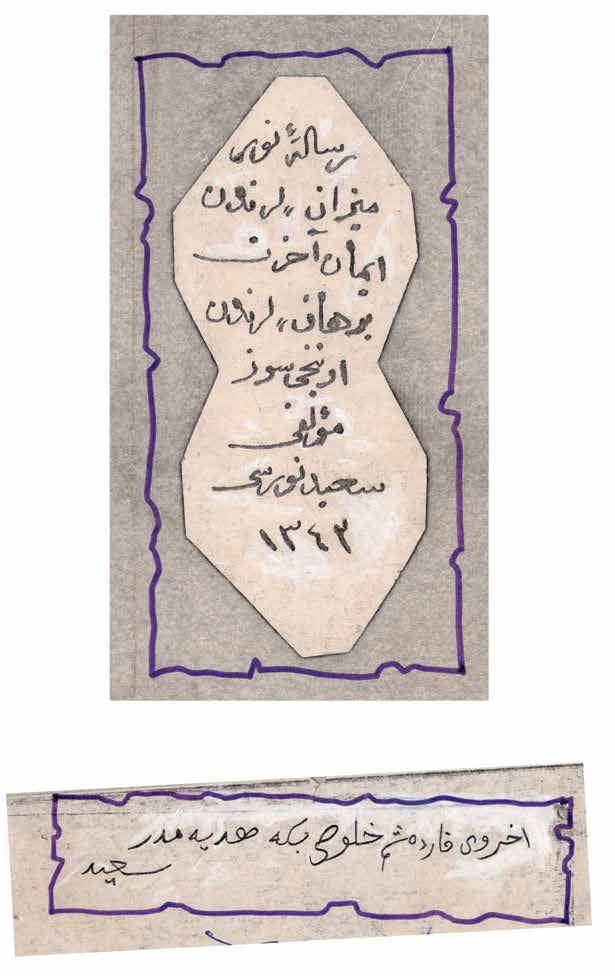 رسالۀ نور
میزانلرندن
ایمان آخرت
برهانلرندن
اوننجی سوز
مؤلفی
سعید نورسی
١٣٤٢
اخروی قارداشم خلوصی بكه هدیه مدر
سعید